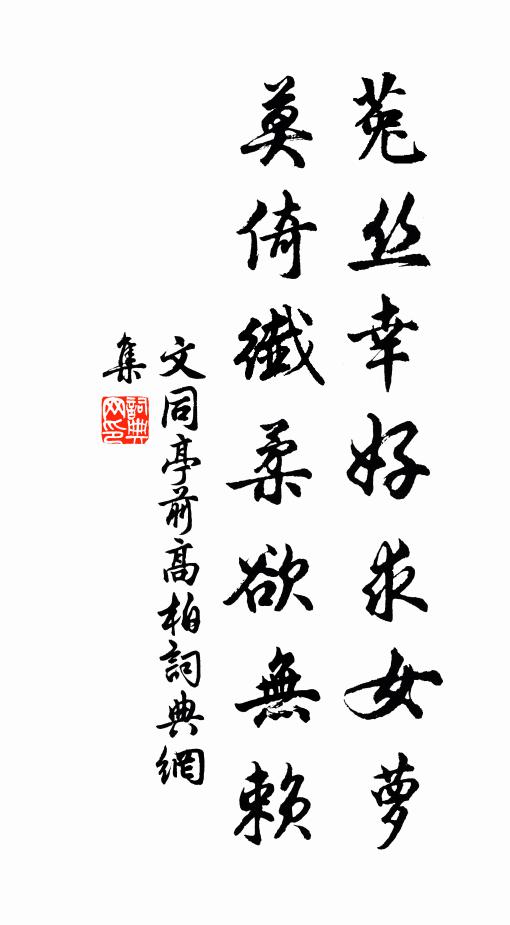 菟丝幸好求女萝
莫倚纖柔欲無賴
文同亭前高柏詞典網
集
詞典網印